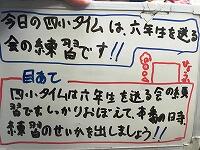 今日の四小タイムは、六年生を送る
会の練習です!!
目あて
四小タイムは六年生を送る会の練
習ですしっかりおぼえて、本番の日に
練習のせいかを出しましょう!!